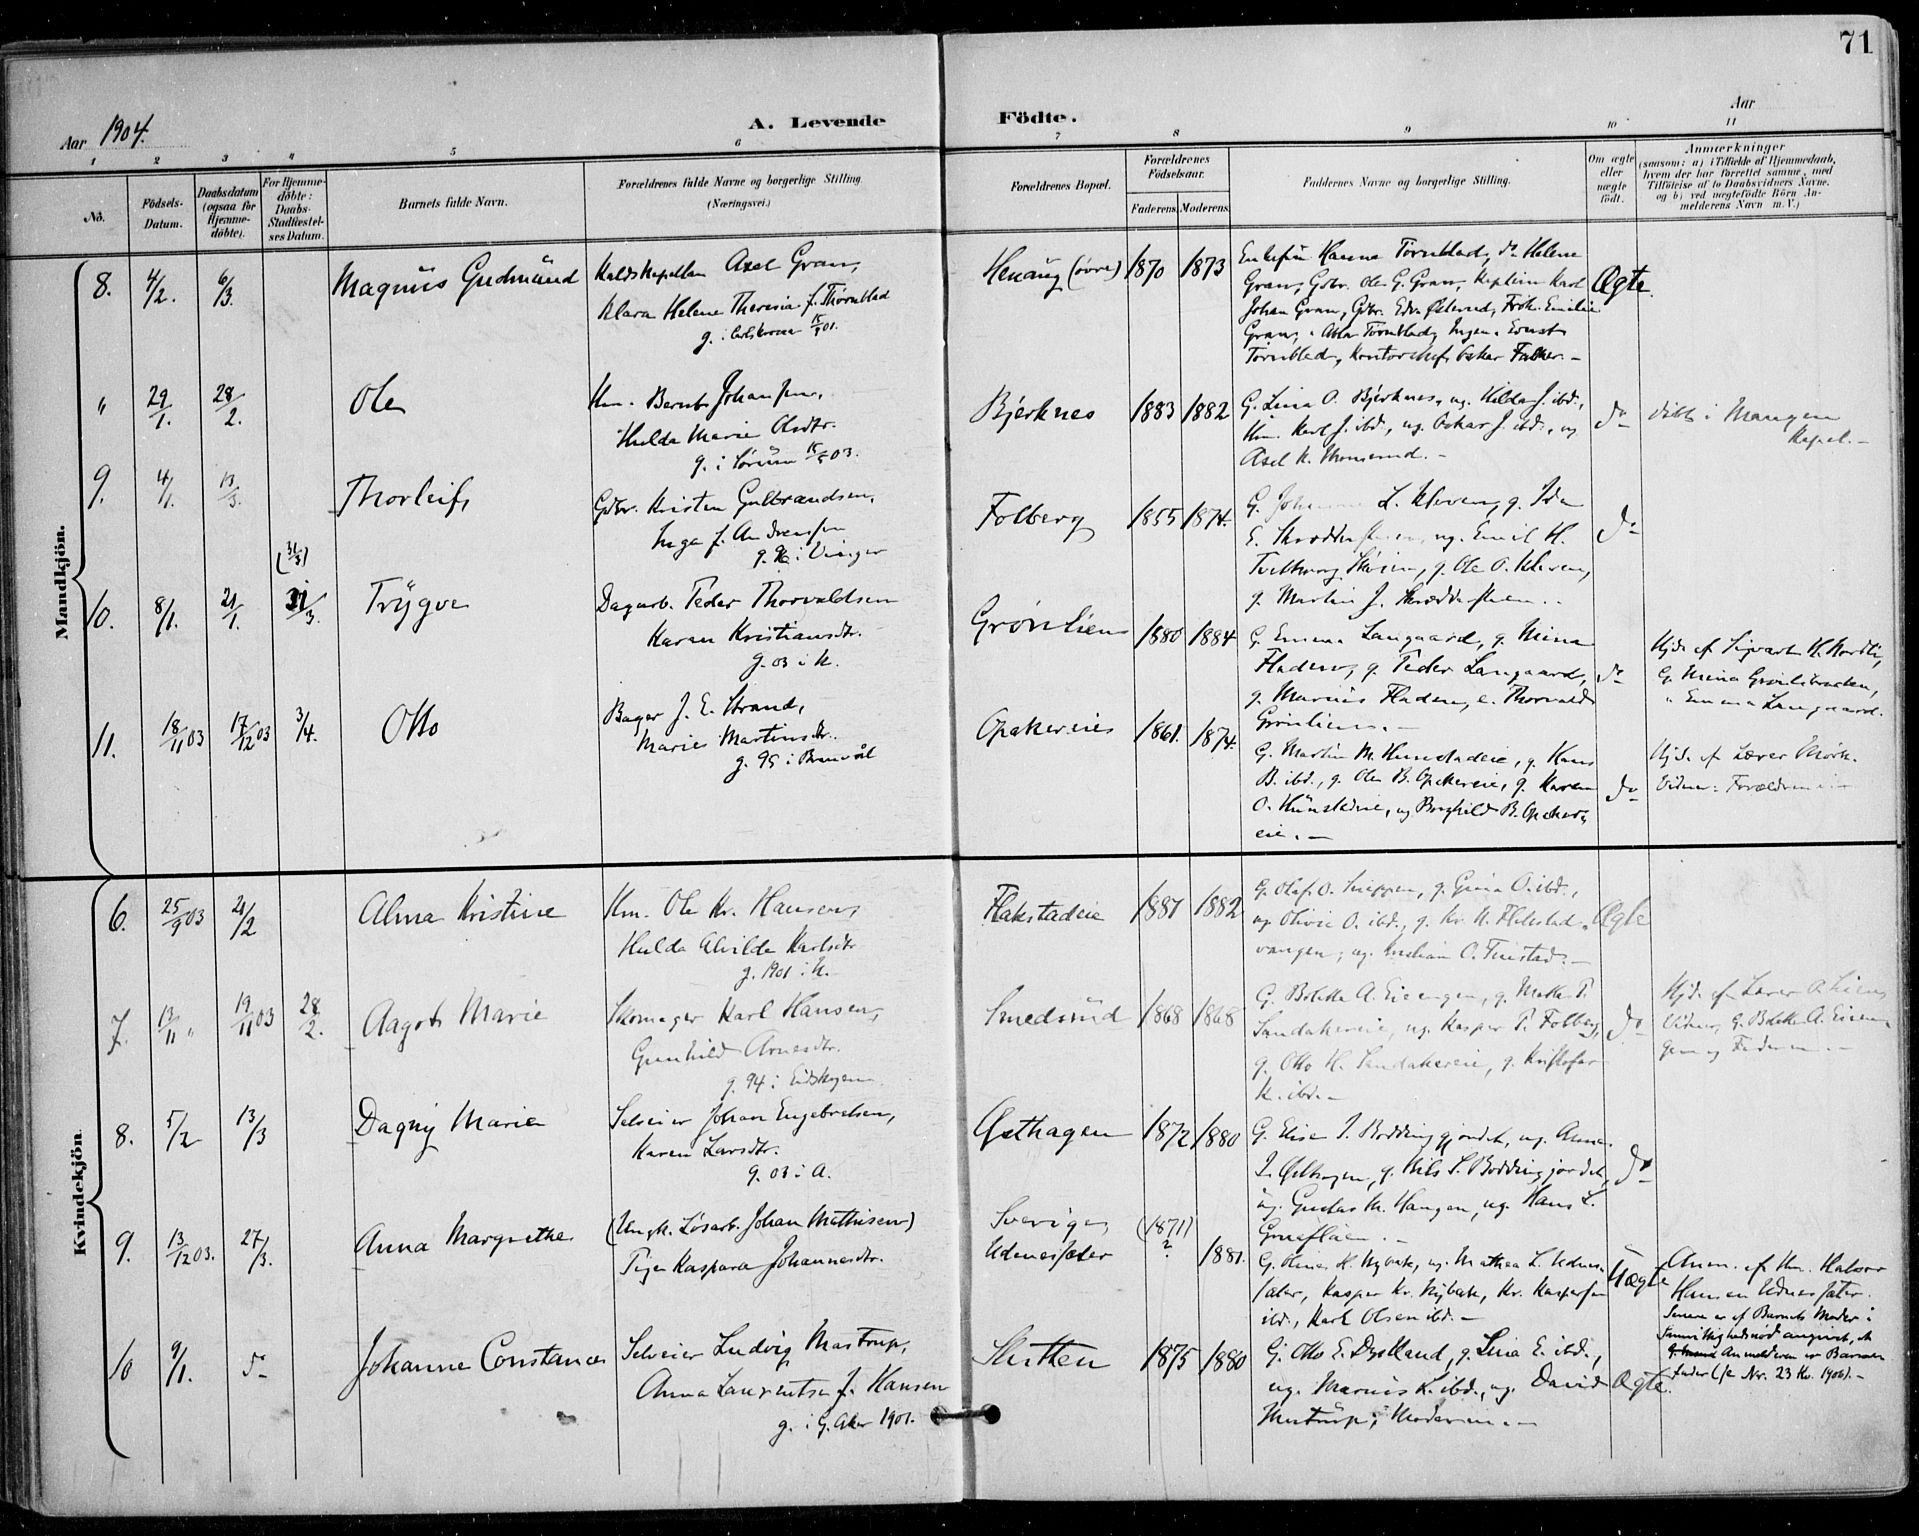 71
Aar 1904.
A. Levende
Födte.
Aar
1 2 3 4 5 6 7 8 9 10 11
No.
Födsels-Datum.
Daabsdatum (ogsaa for Hjemme-döbte).
For Hjemme-döbte: Daabs-Stadfæstel-ses Datum.
Barnets fulde Navn.
Forældrenes fulde Navne og borgerlige Stilling.
(Næringsvei.)
Forældrenes Bopæl.
Forældrenes Födselsaar.
Faderens. Moderens.
Faddernes Navne og borgerlige Stilling.
Om ægte eller uægte födt.
Anmærkninger
(saasom: a) i Tilfælde af Hjemmedaab,
hvem der har forrettet samme, med
Tilföielse af to Daabsvidners Navne.
og b) ved uægtefödte Börn An-
melderens Navn m. V.)
Mandkjön.
8. 4/2. 6/3. Magnus Gudmund
Axel Gran,
Klara Helene Theresia f. Thörnblad
Henaug (övre) 1870 1873
Hanna Törnblad, do Helene
Gran, Gbr. Ole G. Gran, Kaptein Karl
Johan Gran, Gbr. Edv. Østerud, Frök. Emilie
Gran, Törnblad, Ingen. Ernst
Törnblad, Kontorchef Oskar
Ægte.
" 29/1. 28/2. Ole
Km. Bernt Johansen,
Hulda Marie Olsdtr.
g. i Sörum 03.
Bjerknes 1883 1882
G. Lina O. Bjerknes, ug. Hilda J. ibd.,
Km. Karl J. ibd., ug. Oskar J. ibd., ug
Axel K.
do
döbt i Mangen
Kapel.-
9. 4/1. 13/3. Thorleif
Gbr. Kristen Gulbrandsen,
Inga f. Andreassen
g. 96 i Vinger
Folberg 1855 1874.
G. L. Kleven, g. Ida
E. ug. Emil H.
g. Ole O. Kleven,
g. Martin J.
do
(31/3)
10. 8/1. 21/1. 31/3. Trygve
Dagarb. Peder Thorvaldsen
Karen Kristiansdtr.
g. 03 i K.
Grönlien 1880 1884
G. Emma Langaard, g. Mina
Fladen, g. Peder Langaard,
g. Marius Fladen, e. Thorvald
Grönlien.-
do
Hjd. af Sigvart H. Nordli,
G. Mina Grönlibraaten,
" Emma Langaard.
11. 18/11 03 17/12 03 3/4. Otto
Bager J. E. Strand,
Marie Martinsdtr.
g. 95 i Brandvål
Opakereie 1861. 1874.
G. Martin M. Hunstadeie, g. Hans
B. ibd., g. Ole B. Opakereie, g. Karen
O. Hunstadeie, ug Borghild B. Opaker-
eie.-
do
Hjd. af Lærer Mörk.
Vidner: Forældrene
Kvindekjön.
6. 25/9 03 21/2 Alma Kristine
Km. Ole Kr. Hansen,
Hulda Alvilde Karlsdtr
g. 1901 i K.
Flakstadeie 1881 1882
G. Olaf O. g. Gina O. ibd.,
ug Olivie O. ibd., g. Kr. N. Flakstad-
vangen, ug. O.
Ægte
7. 13/11 " 19/11 03 28/2. Aagot Marie
Skomager Karl Hansen,
Gunhild Arnesdtr.
g. 94 i Eidskogen
Smedsrud 1868 1868
G. Bolette A. g. Mathe P.
Sandakereie, ug. Kasper P. Folberg,
g. Otto H. Sandakereie, g. Kristofer
K. ibd.-
do
Hjd. af Lærer A.
Vidner, G. Bolette A.
og Faderen.-
8. 5/2 13/3 Dagny Marie
Selveier Johan Engebretsen,
Karen Larsdtr.
g. 03 i A.
Østhagen 1872 1880
G. Elise I. Boddingjordet, ug. Anna
L. Østhagen, g. Nils S. Boddingjordet,
ug. Gustav M. Haugen, ug. Hans L.
do
9. 13/12 03. 27/3. Anna Margrethe
(Ungk. Lösarb. Johan Mathisen)
Pige Kaspara Johannesdtr.
Sverige,
Udnessæter
(1871)
?
1881.
G. Oline K. Nybak, ug. Mathea L. Udnes-
sæter, Kasper Kr. Nybak, Kr. Kaspersen
ibd., Karl Olsen ibd.-
Uægte
Anm. af Km. Halvor
Hansen Udnessæter.
Senere er af Barnets Moder i
Samvittighedsnød angivet, at
Anmelderen er Barnets
Fader (se Nr. 23 Kv. 1906).-
10 9/1. do Johanne Constance
Selveier Ludvig Mastrup,
Anna Laurentse f. Hansen
g. i G. Aker 1901.
Slutten 1875 1880
G. Otto E. Dystland, g. Lina E. ibd.,
ug. Marius L. ibd., ug. David
Mastrup, Moderen.-
Ægte.